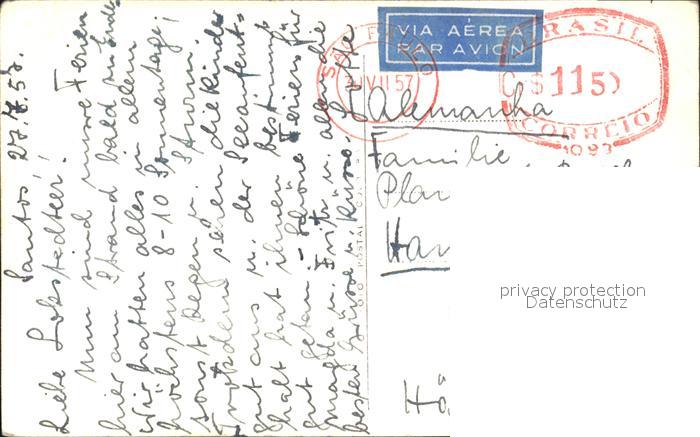 Santos, 27.7.57.
Liebe Lokstedter!
Nun sind unsere Ferien
hier am Strand bald zu Ende
Wir hatten alles in allem
höchstens 8-10 Sonnentage;
sonst Regen u. Sturm.
Trotzdem sehen die Kinder
gut aus u. der Seeaufent-
halt hat ihnen bestimmt
gut getan. - Schöne Ferien für
Magda u. Fritz u. allen die
besten Grüsse u. Küsse
VIA AÉREA
PAR AVION
SÃO PAULO
VII 57
BRASIL
11 50
CORREIO
1093
Alemanha
Familie
Plan
Ham
Hö
privacy protection
Datenschutz